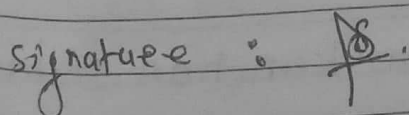 signatuee :